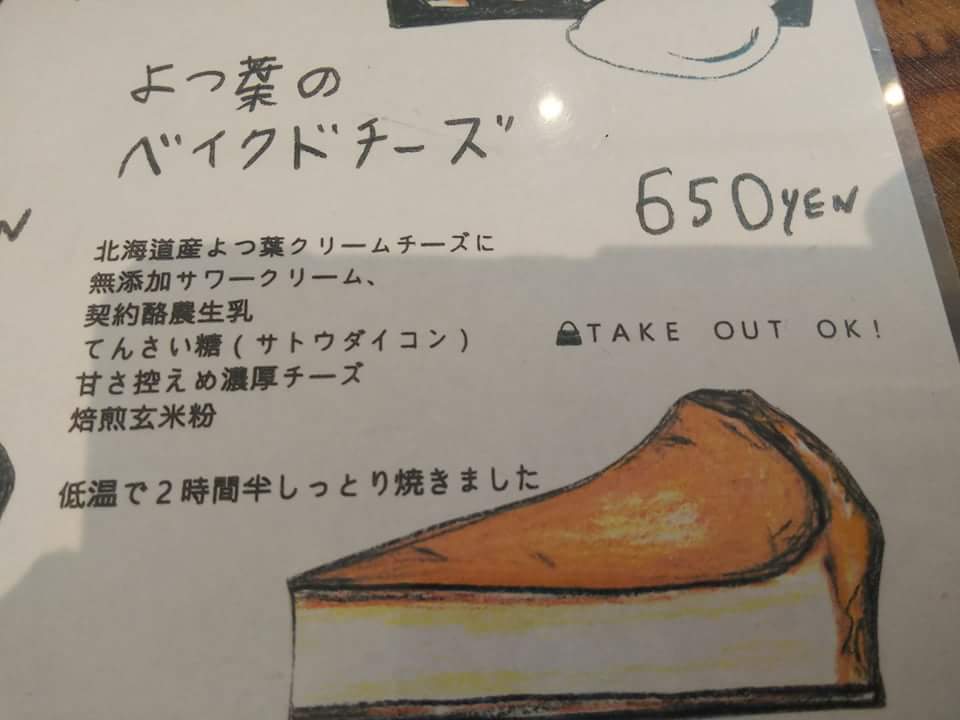 よつ葉の
ベイクドチーズ
650YEN
北海道産よつ葉クリームチーズに
無添加サワークリーム、
契約酪農生乳
てんさい糖(サトウダイコン)
甘さ控えめ濃厚チーズ
焙煎玄米粉
TAKE OUT OK!
低温で2時間半しっとり焼きました